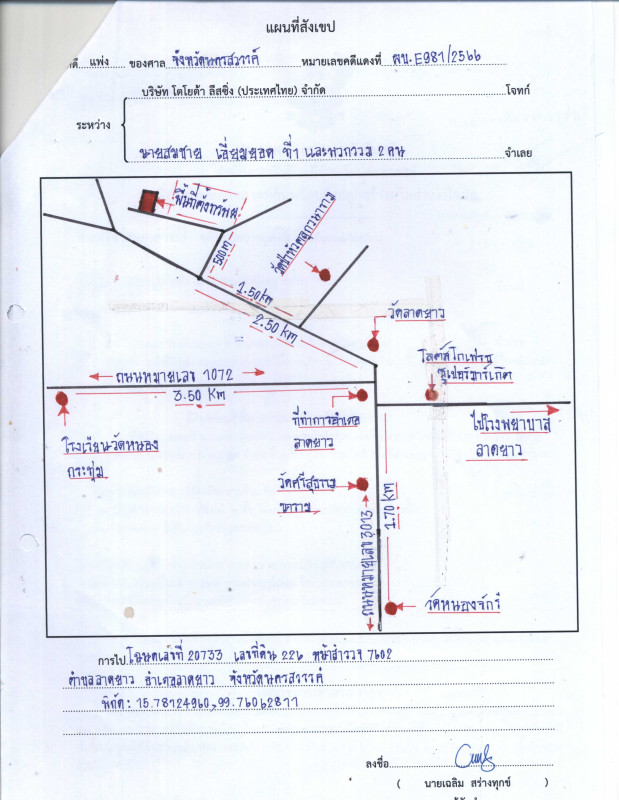 แผนที่สังเขป
คดี แพ่ง ของศาล จังหวัดนครสวรรค์ หมายเลขคดีแดงที่ ผบ.E981/2566
บริษัท โตโยต้า ลีสซิ่ง (ประเทศไทย) จำกัด โจทก์
ระหว่าง
นายสมชาย เอี่ยมยอด ที่1 และพวกรวม 2 คน จำเลย
พื้นที่ตั้งทรัพย์
500 m
1.50 km
2.50 Km
วัดลาดยาว
โลตัสโกเฟรช
ซุปเปอร์มาร์เก็ต
ถนนหมายเลข 1072
3.50 Km
ที่ทำการอำเภอ
ลาดยาว
ไปโรงพยาบาล
ลาดยาว
โรงเรียนวัดหนอง
กระทุ่ม
วัดศรีสุธรรม
ถนนหมายเลข 3013
1.70 KM
วัดหนองจิกรี
การไป โฉนดเลขที่ 20733 เลขที่ดิน 226 หน้าสำรวจ 7602
ตำบลลาดยาว อำเภอลาดยาว จังหวัดนครสวรรค์
พิกัด: 15.78124960,99.76062811
ลงชื่อ
( นายเฉลิม สร่างทุกข์ )